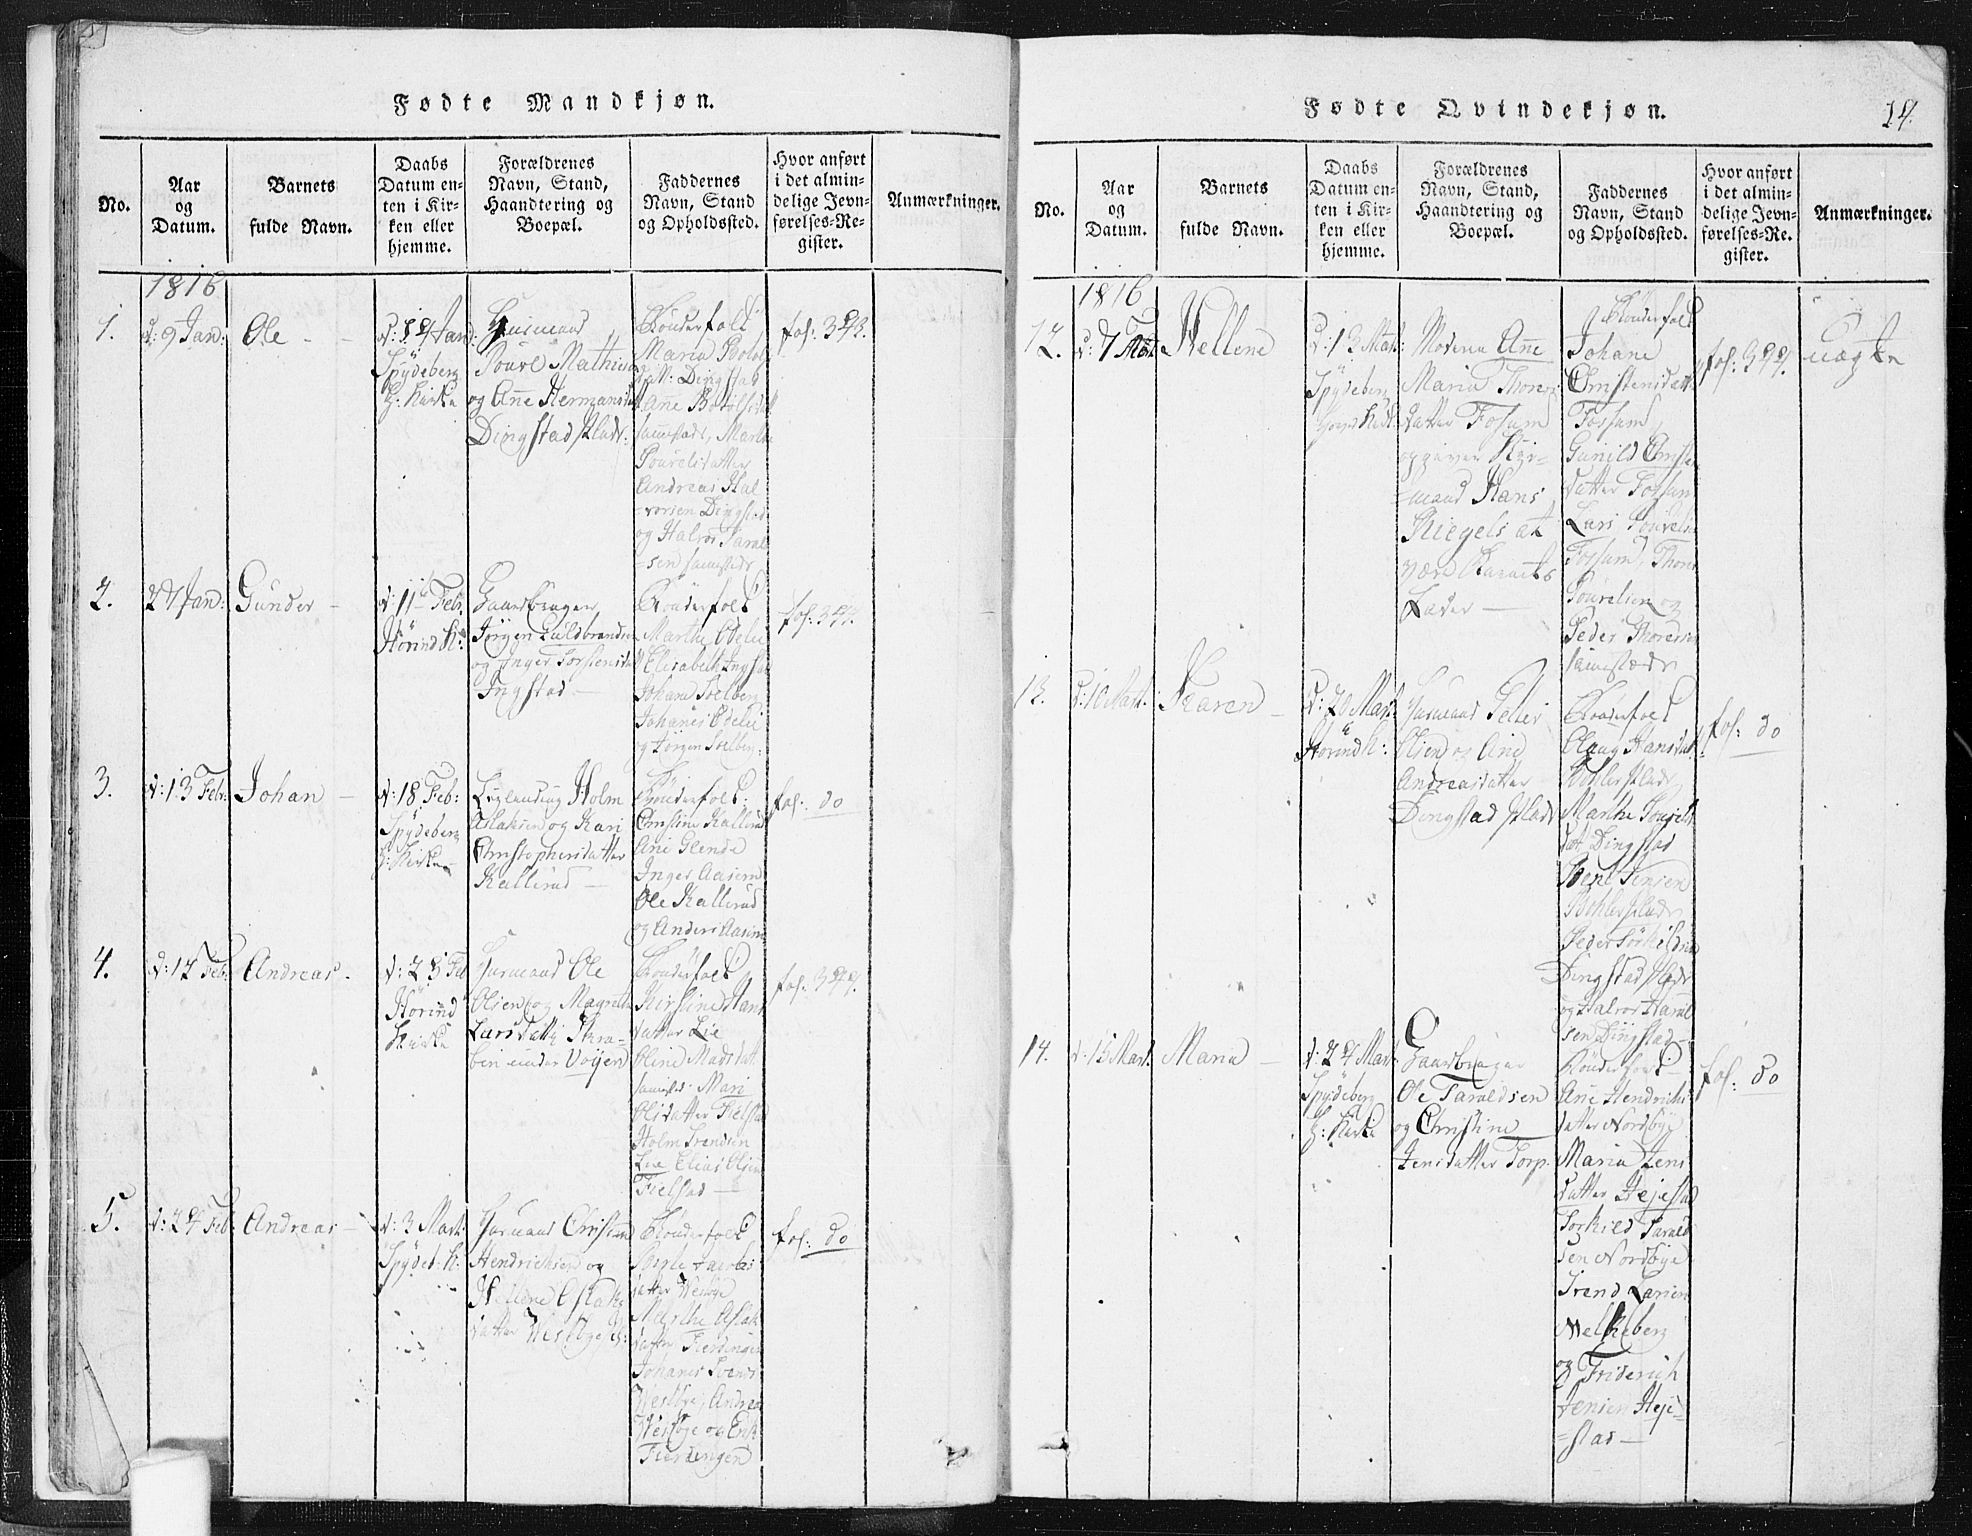 Fødte Mandkjøn.
No.
Aar
og
Datum.
Barnets
fulde Navn.
Daabs
Datum en-
ten i Kir-
ken eller
hjemme.
Forældrenes
Navn, Stand,
Haandtering og
Boepæl.
Faddernes
Navn, Stand
og Opholdssted.
Hvor anført
i det almin-
delige Jevn-
førelses-Re-
gister.
Anmærkninger.
1816
1.
d: 9 Jan:
Ole
d: 14 Jan:
Spydeberg
H: Kirke
Huusmand
Povel Mathisen
og Anne Hermansdatt
Dingstad Plads:
Bönderfolk
Maria Botols
datt: Dingstad
Anne Botolsdatt
sammesteds, Marthe
Povelsdatter
Andreas Hal
-vorsen Dingstad
og Halvor Taral
-sen sammesteds
fol: 343.
2.
27 Jan:
Gunder
d: 11 Febr.
Hovind K:
Gaardbruger
Jörgen Guldbrandsen
og Inger Torstensdatt
Ingstad
Bönderfolk
Marthe Edelie
Elisabeth Ingstad
Johane Solberg
Johanes Edelie
og Jörgen Solberg:
fol: 344.
3.
d: 13 Febr:
Johan
d: 18 Feb:
Spydeberg
H: Kirke
Holm
Aslaksen og Kari
Christophersdatter
Kallerud
Bönderfolk:
Christine Kallerud
Ane Glende
Inger Aasern
Ole Kallerud
og Anders Aasern
fol: do
4.
d: 17 Feb:
Andreas
d: 25 Feb
Hovind
Kirke
Huusmand Ole
Olsen og Magrethe
Larsdatter
under Vojen
Bönderfolk
Kirstine Hans
datter Lie
Olene Madsdatt
sammest: Mari
Olsdatter Fielstad
Holm Svendsen
Lie Elias Olsen
Fielstad
fol: 344.
5.
d: 24 Feb
Andreas
d: 3 Mart:
Spydeb: K:
Huusmand Christian
Hendrichsen og
Hellene Aslaks
datter Westbye
Bönderfolk
datter Westbye
Marthe Aslak
datter Fierdingen
Johanes Svends
Westbye, Andreas
Westbye og Erik
Fierdingen
fol: do
Fødte Qvindekjøn.
14.
No.
Aar
og
Datum.
Barnets
fulde Navn.
Daabs
Datum en-
ten i Kir-
ken eller
hjemme.
Forældrenes
Navn, Stand,
Haandtering og
Boepæl.
Faddernes
Navn, Stand
og Opholdssted.
Hvor anført
i det almin-
delige Jevn-
førelses-Re-
gister.
Anmærkninger.
1816
12.
d: 7 Mart
Hellene
d: 13 Mart:
Spydeberg
Hoved Kirk:
Moderen Anne
Maria Thores
datter Fosum
opgiver Styr-
-mand Hans
Riegels at
være Barnets
Fader
Bönderfolk
Johane
Christensdatt
Fossum,
Gunild Christens
datter Fossum
Lars Povelsen
Fossum, Thore
Povelsen og
Peder Thoresen
sammesteds
fol: 344.
uægte
13.
d: 10 Mart:
Karen
d: 20 Mart
Hovind K:
Huusmand Peder
Olsen og Ane
Andreasdatter
Dingstad Plads
Bönderfolk
Olaug Hansdatt
Bohler Plads
Marthe Povels
datt Dingstad
Bent Jensen
Bohler Plads
Peder Torkildsen
Dingstad Plads
og Halvor Taral
sen Dingstad
fol: do
14.
d: 15 Mart:
Maria
d: 24 Mart
Spydeberg
H: Kirke
Gaardbruger
Ole Taraldsen
og Christine
Jensdatter Torp.
Bönderfolk
Ane Hendrichs
datter Nordbye
Maria Jens
datter Hejestad
Torkild Tarald
sen Nordbye
Trend Larsen
Melkeberg
og Friderich
Jensen Heje-
-stad
fol: do